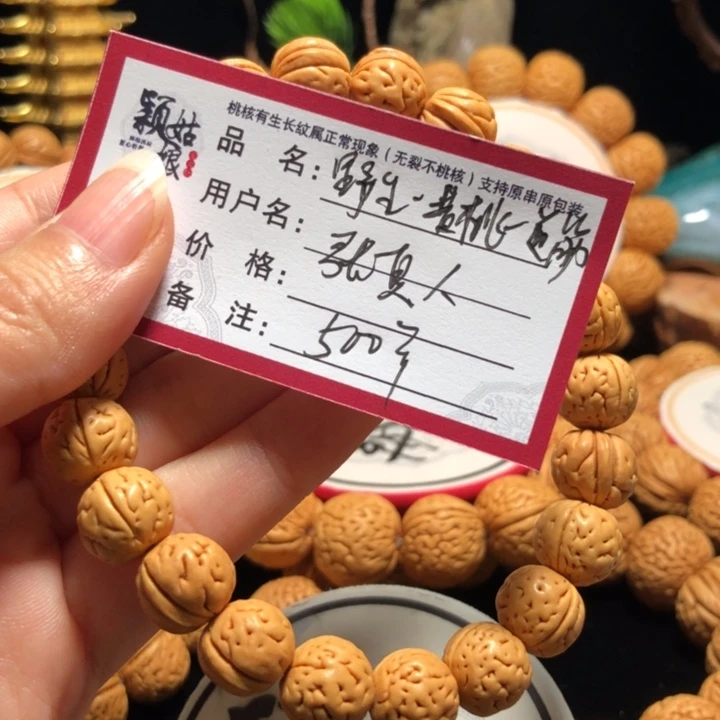 颖姑娘
桃核有生长纹属正常现象（无裂不桃核）支持原串原包装
品 名：野生黄桃心
用户名：张真人
价 格：500
备 注：